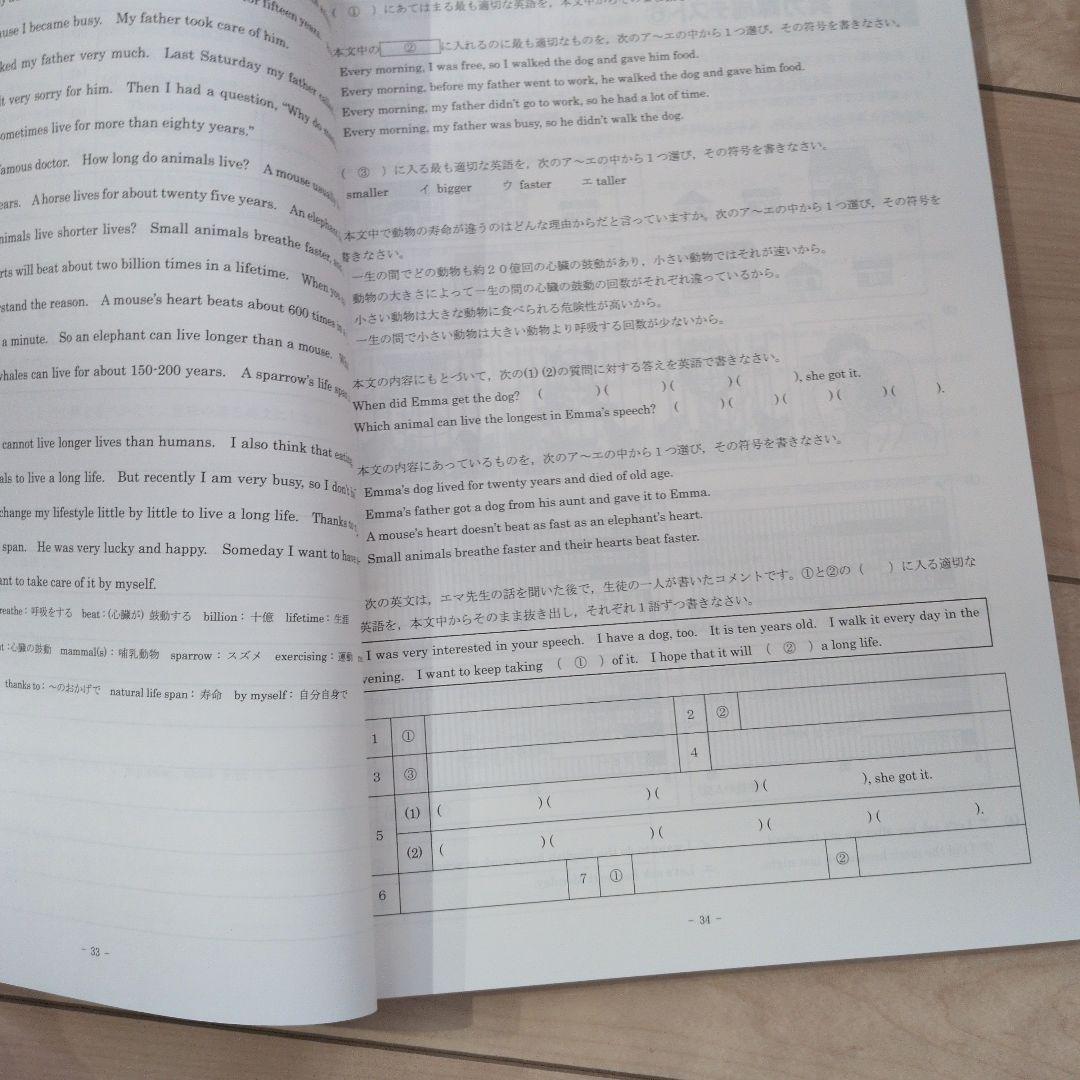 fifteen years.
use I became busy. My father took care of him.
ked my father very much. Last Saturday my father
t very sorry for him. Then I had a question, "Why do
ometimes live for more than eighty years."
famous doctor. How long do animals live? A mouse usually
ears. A horse lives for about twenty five years. An elephant
nimals live shorter lives? Small animals breathe faster,
rts will beat about two billion times in a lifetime. When you
stand the reason. A mouse's heart beats about 600 times in
a minute. So an elephant can live longer than a mouse.
whales can live for about 150-200 years. A sparrow's life span
cannot live longer lives than humans. I also think that eating
als to live a long life. But recently I am very busy, so I don't
change my lifestyle little by little to live a long life. Thanks to
span. He was very lucky and happy. Someday I want to have
nt to take care of it by myself.
reathe：呼吸をする beat：(心臓が) 鼓動する billion：十億 lifetime：生涯
t：心臓の鼓動 mammal(s)：哺乳動物 sparrow：スズメ exercising：運動
thanks to：～のおかげで natural life span：寿命 by myself：自分自身で
- 33 -
( ① ) にあてはまる最も適切な英語を，本文中から
本文中の ② に入れるのに最も適切なものを，次のア～エの中から１つ選び，その符号を書きなさい。
Every morning, I was free, so I walked the dog and gave him food.
Every morning, before my father went to work, he walked the dog and gave him food.
Every morning, my father didn't go to work, so he had a lot of time.
Every morning, my father was busy, so he didn't walk the dog.
( ③ ) に入る最も適切な英語を，次のア～エの中から１つ選び，その符号を書きなさい。
smaller イ bigger ウ faster エ taller
本文中で動物の寿命が違うのはどんな理由からだと言っていますか。次のア～エの中から１つ選び，その符号を
書きなさい。
一生の間でどの動物も約２０億回の心臓の鼓動があり，小さい動物ではそれが速いから。
動物の大きさによって一生の間の心臓の鼓動の回数がそれぞれ違っているから。
小さい動物は大きな動物に食べられる危険性が高いから。
一生の間で小さい動物は大きい動物より呼吸する回数が少ないから。
本文の内容にもとづいて，次の(1) (2)の質問に対する答えを英語で書きなさい。
When did Emma get the dog? ( )( )( )( ), she got it.
Which animal can live the longest in Emma's speech? ( )( )( )( )( ).
本文の内容にあっているものを，次のア～エの中から１つ選び，その符号を書きなさい。
Emma's dog lived for twenty years and died of old age.
Emma's father got a dog from his aunt and gave it to Emma.
A mouse's heart doesn't beat as fast as an elephant's heart.
Small animals breathe faster and their hearts beat faster.
次の英文は，エマ先生の話を聞いた後で，生徒の一人が書いたコメントです。①と②の（ ）に入る適切な
英語を，本文中からそのまま抜き出し，それぞれ１語ずつ書きなさい。
I was very interested in your speech. I have a dog, too. It is ten years old. I walk it every day in the
vening. I want to keep taking ( ① ) of it. I hope that it will ( ② ) a long life.
1 ① 2 ②
3 ③ 4
5 (1) ( )( )( )( ), she got it.
(2) ( )( )( )( )( ).
6 7 ① ②
- 34 -